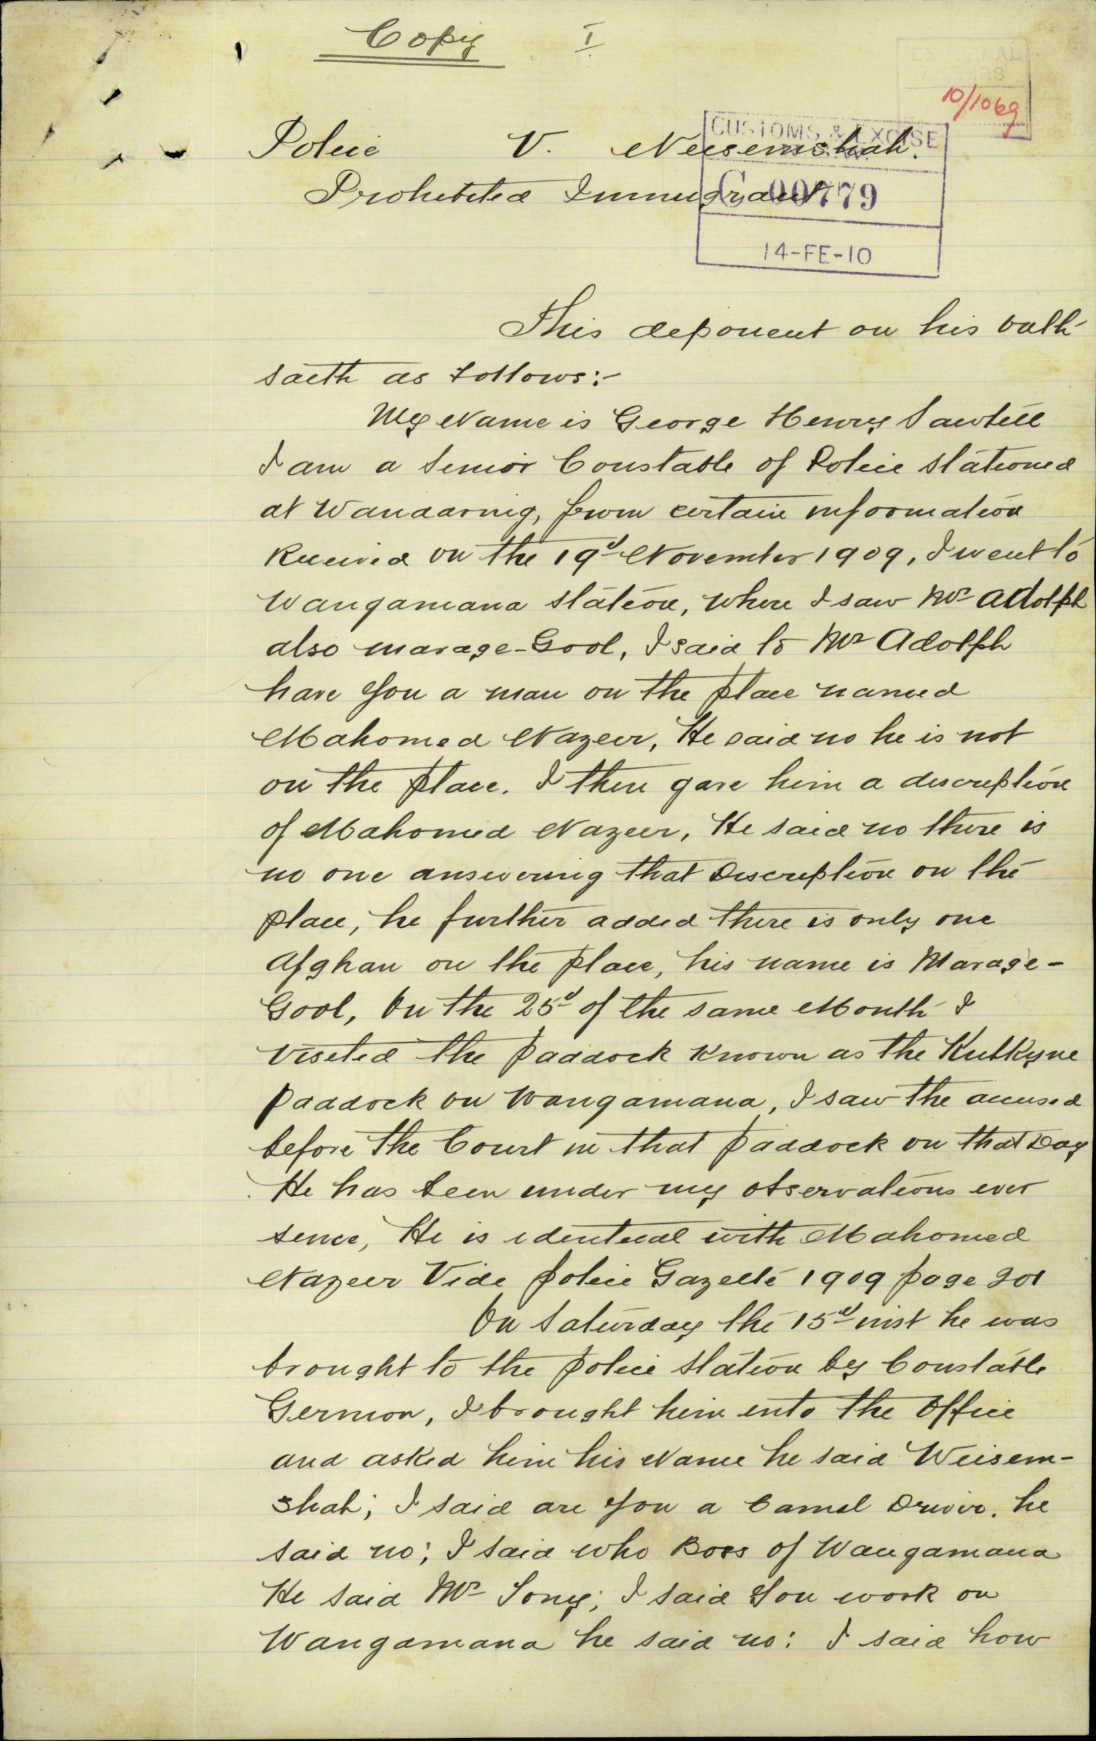 Copy I
10/1069
Police V. Neisemshah.
CUSTOMS & EXCISE
Prohibited Immigrant
C 00779
14-FE-10
This deponent on his oath
saeth as follows:-
My Name is George Henry Sawtell
I am a Senior Constable of Police stationed
at Wanaaring, from certain information
Received on the 19d November 1909, I went to
Wangamana station, where I saw Mr Adolph
also marage-Gool, I said to Mr Adolph
have you a man on the place named
Mahomed Nazeer, He said no he is not
on the place. I then gave him a discreption
of Mahomed Nazeer, He said no there is
no one answering that Discreption on the
place, he further added there is only one
Afghan on the place, his name is Marage-
Gool, On the 25d of the same Month I
visited the paddock known as the Kulkyne
paddock on Wangamana, I saw the accused
before the Court in that paddock on that Day
He has been under my observations ever
sence, He is identical with Mahomed
Nazeer Vide police Gazette 1909 page 201
On Saturday the 15d inst he was
brought to the police station by Constable
Germon, I brought him into the Office
and asked him his Name he said Weisem-
shah; I said are you a Camel Driver. he
said no; I said who Boss of Wangamana
He said Mr Tony; I said You work on
Wangamana he said no: I said how